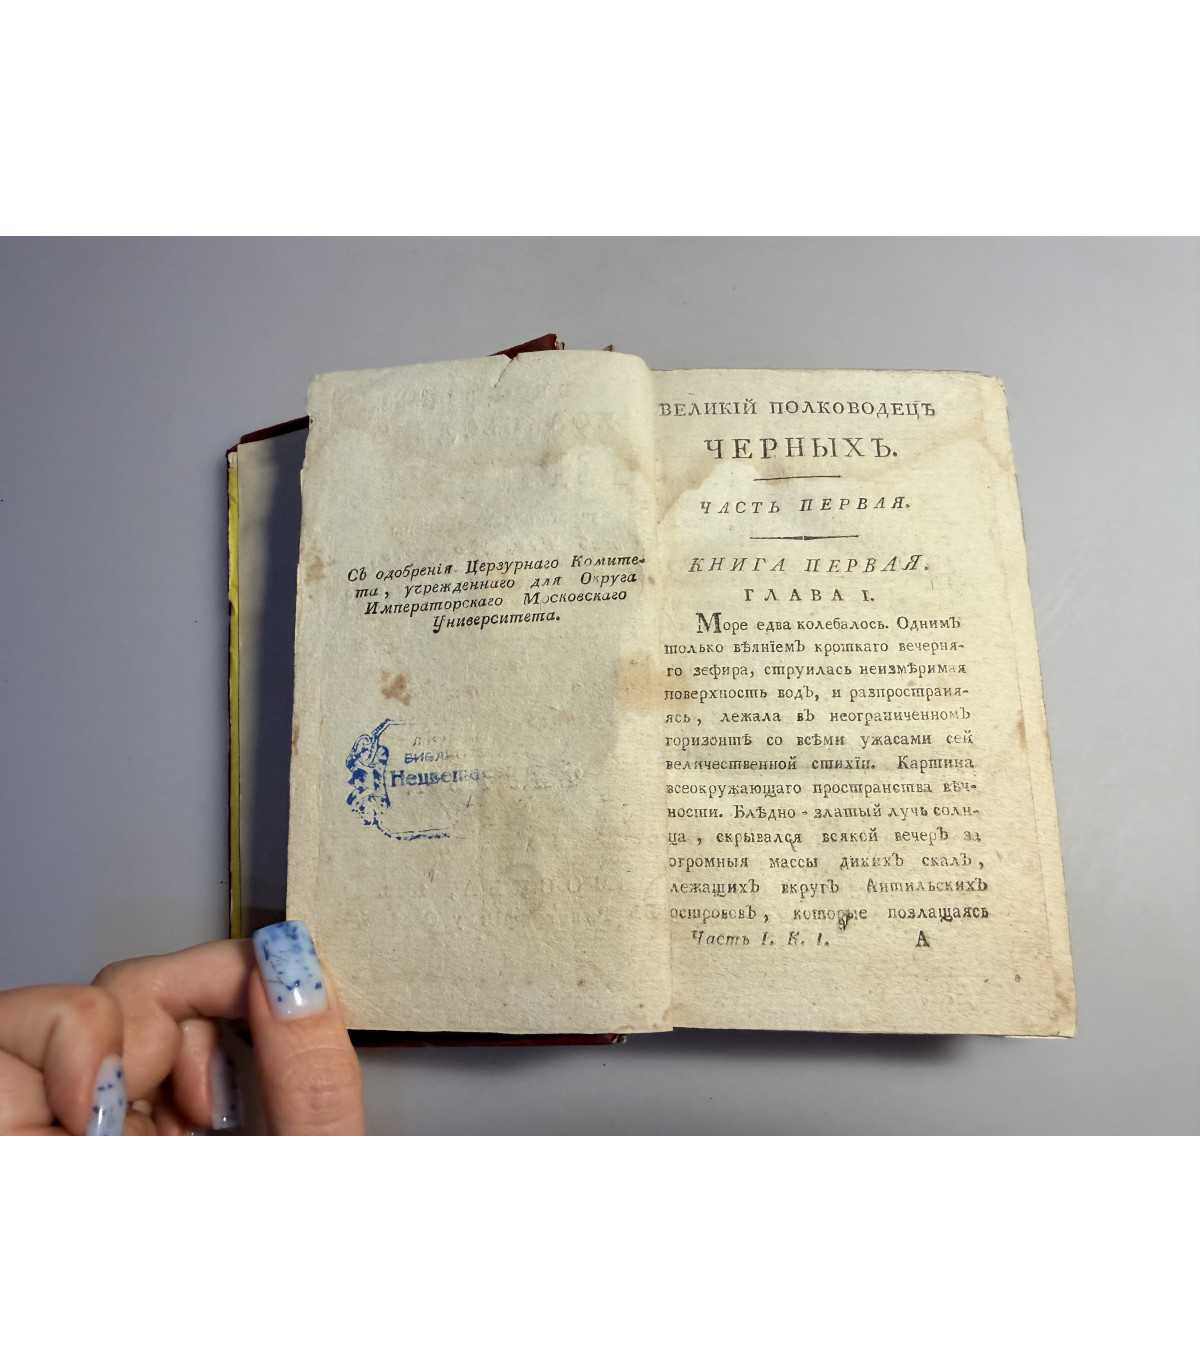 Съ одобренія Церзурнаго Комите-
та, учрежденнаго для Округа
Императорскаго Московскаго
Университета.
ВЕЛИКІЙ ПОЛКОВОДЕЦЪ
ЧЕРНЫХЪ.
ЧАСТЬ ПЕРВАЯ.
КНИГА ПЕРВАЯ.
ГЛАВА I.
Море едва колебалось. Однимъ
только вѣяніемъ кроткаго вечерня-
го зефира, струилась неизмѣримая
поверхность водъ, и разпространя-
ясь, лежала въ неограниченномъ
горизонтѣ со всѣми ужасами сей
величественной стихіи. Картина
всеокружающаго пространства вѣч-
ности. Блѣдно-златый лучь солн-
ца, скрывался всякой вечеръ за
огромныя массы дикихъ скалъ,
лежащихъ вкругъ Антильскихъ
острововъ, которые позлащаясь
Часть I. К. I. А